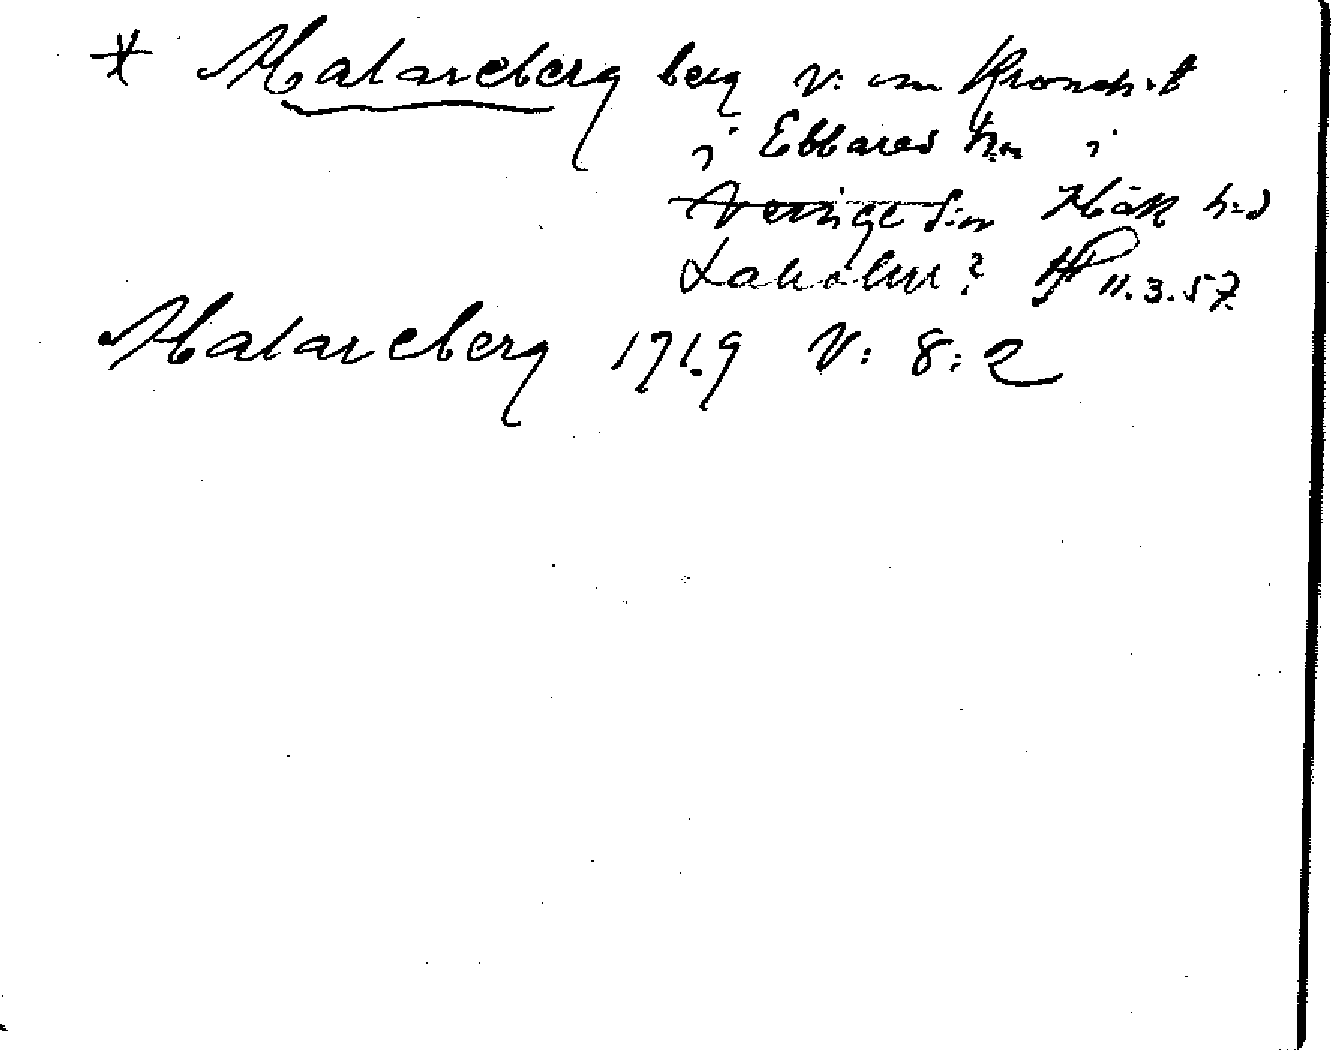 * Malareberg berg V. om Kronoh.
i Ebbared hn i
Veinge sn Hök hd
Laholm? 11.3.57
Malareberg 1719 V: 8: 2